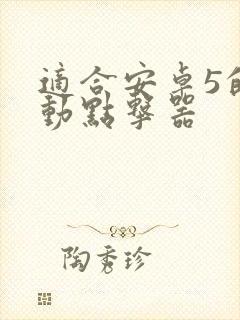 適合安卓5的
動點擊器
陶秀珍